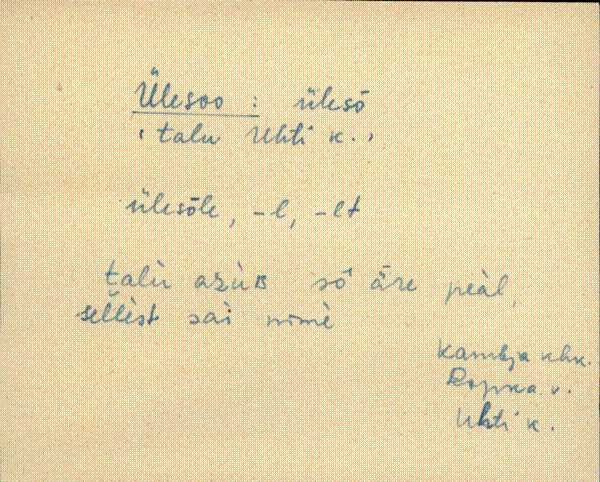 Ülesoo : ülesō
‹ talu Uhti k. ›
ülesōle, -l, -lt
talù azùʙ sō̬ äre peàl,
sellèst sai nimè
Kambja khk.
Ropka v.
Uhti k.